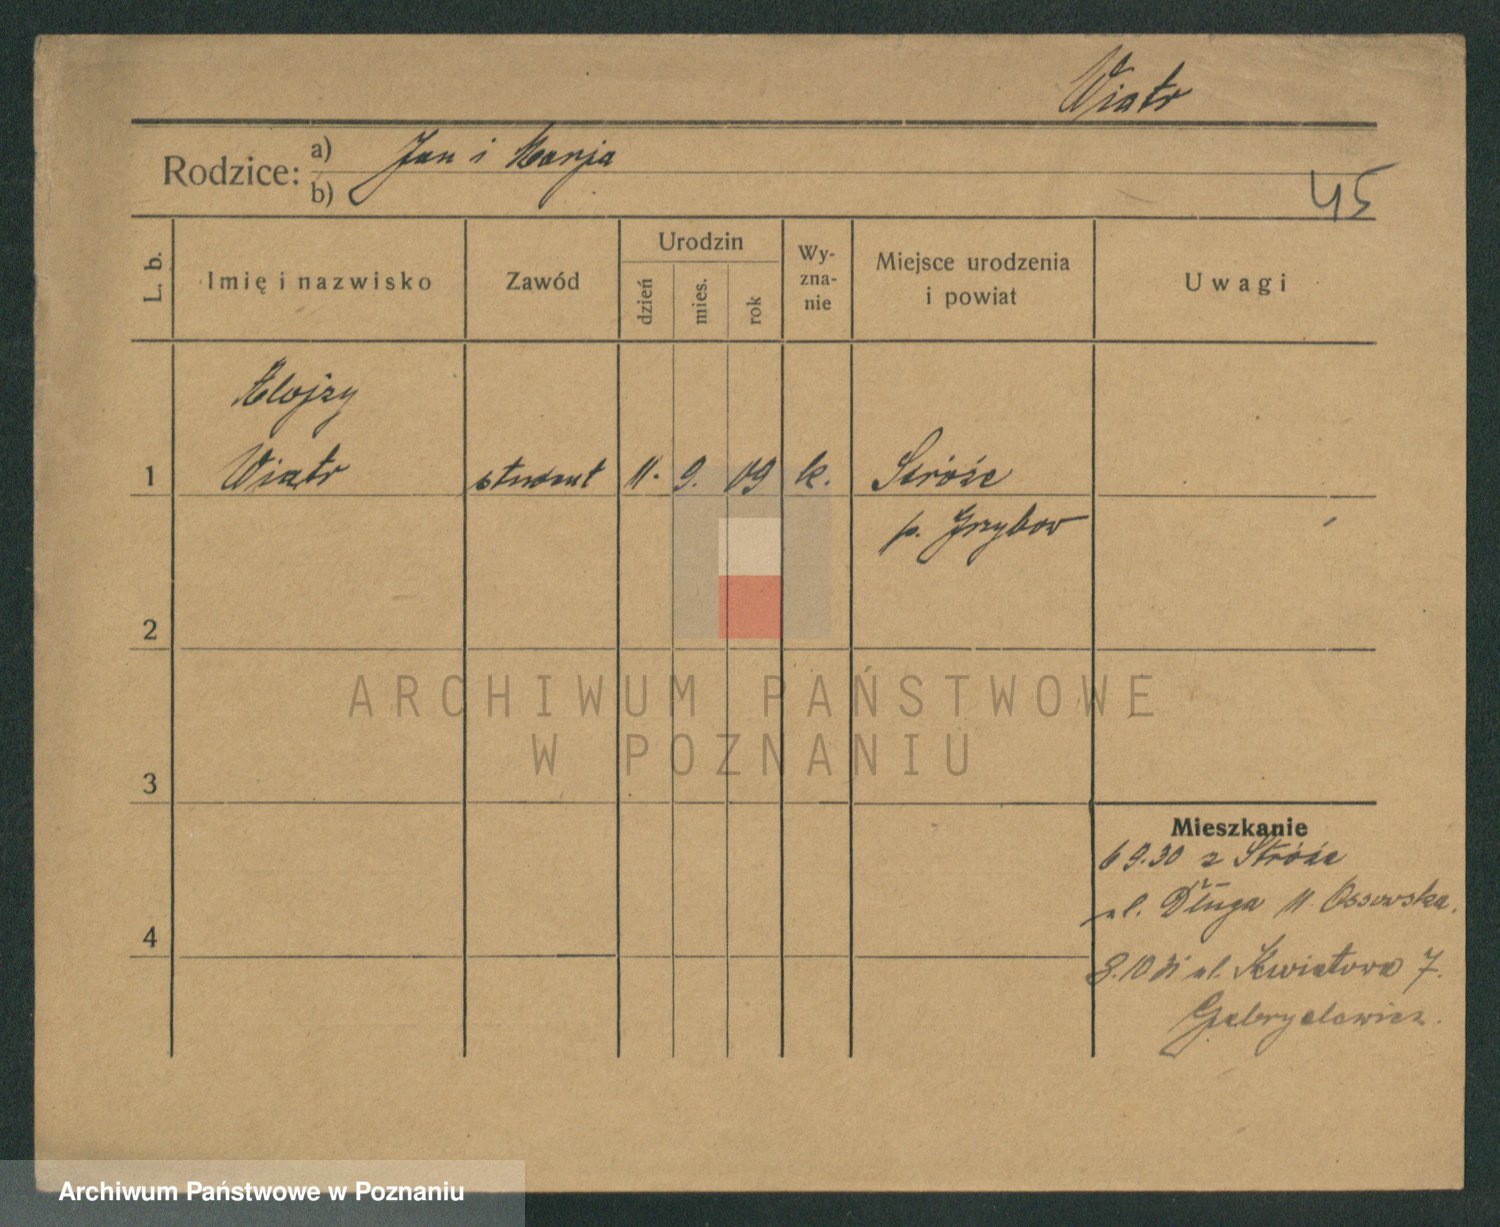 Wiatr
Rodzice: a) Jan i Marja
b)
45
L. b. Imię i nazwisko Zawód Urodzin dzień mies. rok Wy-zna-nie Miejsce urodzenia i powiat Uwagi
Alojzy
1 Wiatr student 11. 9. 09 k. Stróże
p. Grybow
2
ARCHIWUM PAŃSTWOWE
W POZNANIU
3
Mieszkanie
6 9.30 z Stróże
ul. Długa 11 Ossowska.
4
3.10 31 ul. Kwiatowa 7.
Gabryelewicz.
Archiwum Państwowe w Poznaniu